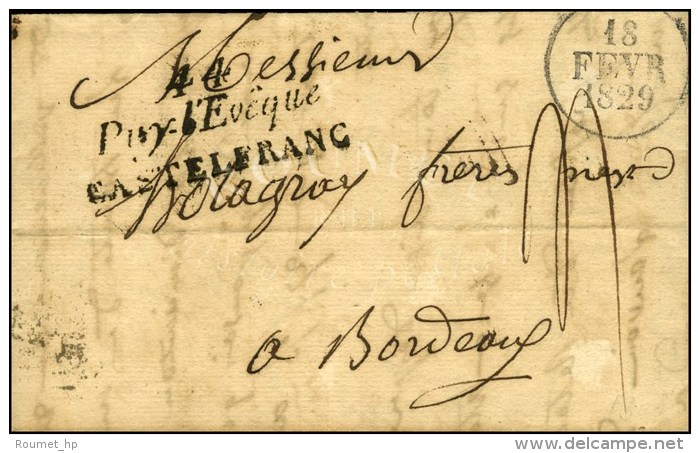 Messieurs
44
Puy-l'Evêque
CASTELFRANC
18
FEVR
1829
frères
a Bordeaux
Roumet_hp
© delcampe.net